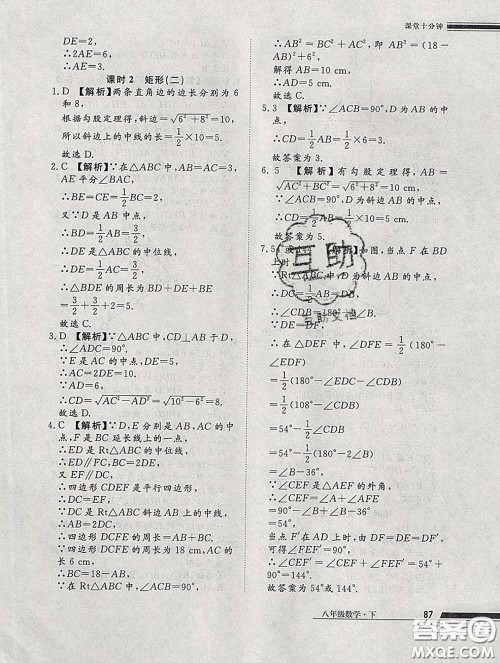 课堂十分钟
DE=2,
∴AE=3.
课时2 矩形(二)
1. D 【解析】两条直角边的边长分别为6
和8,
根据勾股定理得,斜边=√6²+8²=10,
所以斜边上的中线的长=1/2×10=5.
故选D.
2. C 【解析】∵在△ABC中,AB=AC=3,
AE平分∠BAC,
∴BE=CE=1/2BC=2,
又∵D是AB的中点,
∴BD=1/2AB=3/2,
∴DE是△ABC的中位线,
∴DE=1/2AC=3/2,
∴△BDE的周长为BD+DE+BE=
3/2+3/2+2=5.
故选C.
3. D 【解析】∵△ABC中,CD⊥AB于D,
∴∠ADC=90°.
∵E是AC的中点,DE=5,
∴AC=2DE=10.
∵AD=6,
∴CD=√AC²-AD²=√10²-6²=8.
故选D.
4. C 【解析】∵D,E分别是AB,AC的中
点,F是BC延长线上的一点,
∴ED是Rt△ABC的中位线,
∴ED∥FC,BC=2DE,
又EF∥DC,
∴四边形CDEF是平行四边形,
∴DC=EF,
∵DC是Rt△ABC斜边AB上的中线,
∴AB=2DC,
∴四边形DCFE的周长=AB+BC,
∵四边形DCFE的周长为18 cm,AC的
长6 cm,
∴BC=18-AB,
∵在Rt△ABC中,∠ACB=90°,
∴AB²=BC²+AC²,即AB²=(18-
AB)²+6²,
解得AB=10 cm,
故选C.
5. 3 【解析】∵∠ACB=90°,D为AB的
中点,
∴CD=1/2AB=1/2×6=3.
故答案为3.
6. 5 【解析】有勾股定理得,AB=
√AC²+BC²=√6²+8²=10 cm,
∵∠ACB=90°,D为AB的中点,
∴CD=1/2AB=1/2×10=5 cm.
故答案为5.
如图,当点F在BD
上时,
∵在Rt△ABC中,D为斜边AB的中点,
∴DC=1/2AB=DB,
∵DE=DF,
∴在△DEF中,∠DEF=1/2(180°-
∠EDF)
=1/2(180°-∠EDC-∠CDB)
=1/2(180°-36°-∠CDB)
=54°-1/2∠CDB
=54°-1/2(180°-2∠B)
=∠B-36°,
∵∠CEF是△BEF的外角,
∴∠CEF=∠DEF+∠B
=∠B+∠B-36°
=54°;
当点F′在AD上时,由DE=DF=DF′,
可得∠FEF′=90°,
∴∠CEF′=∠CEF+∠FEF′=54°+90°
=144°,
故答案为54°或144°.
互助
互助文档
八年级数学·下 87
答案圈
MXQE.COM